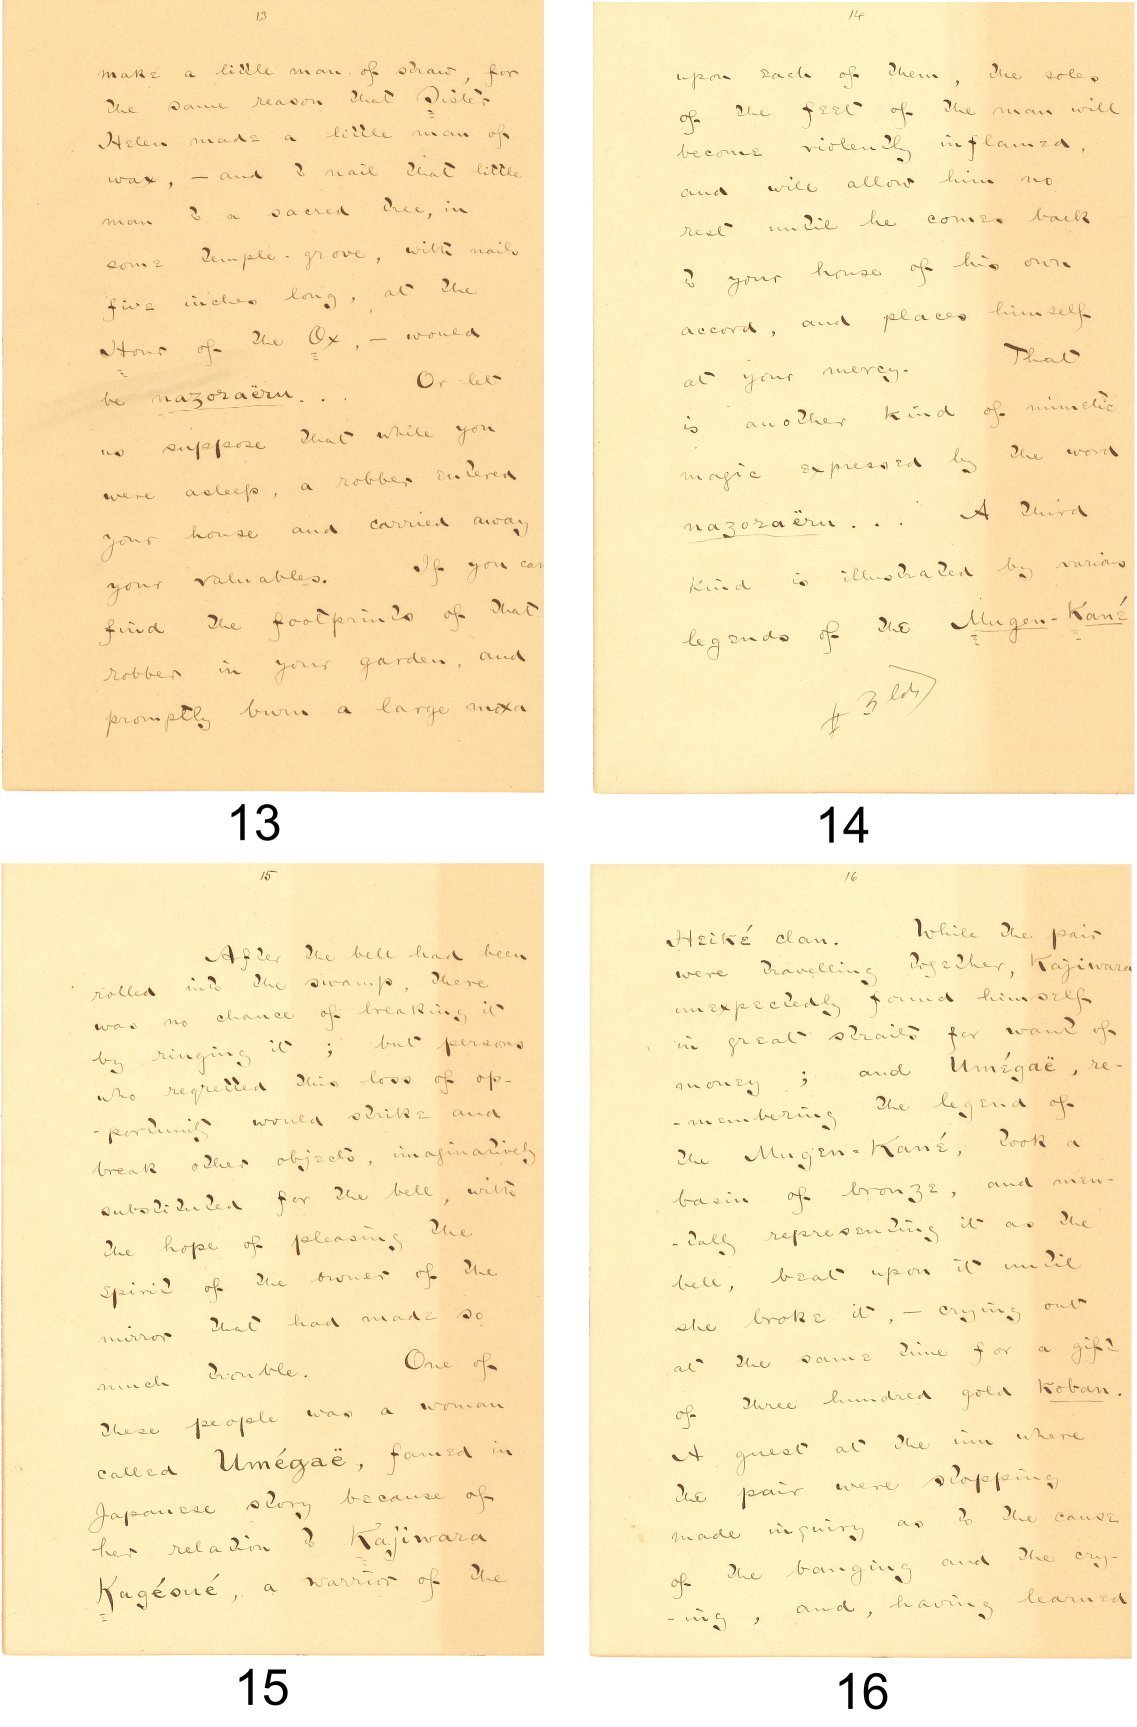 13
make a little man of straw, for
the same reason that Sister
Helen made a little man of
wax, — and to nail that little
man to a sacred tree, in
some temple-grove, with nails
five inches long, at the
Hour of the Ox, — would
be nazoraëru. . . Or let
us suppose that while you
were asleep, a robber entered
your house and carried away
your valuables. If you can
find the footprints of that
robber in your garden, and
promptly burn a large moxa
13
14
upon each of them, the soles
of the feet of the man will
become violently inflamed,
and will allow him no
rest until he comes back
to your house of his own
accord, and places himself
at your mercy. That
is another kind of mimetic
magic expressed by the word
nazoraëru . . . A third
kind is illustrated by various
legends of the Mugen-Kané
# 3 lds
14
15
After the bell had been
rolled into the swamp, there
was no chance of breaking it
by ringing it ; but persons
who regretted this loss of op-
-portunity would strike and
break other objects, imaginatively
substituted for the bell, with
the hope of pleasing the
spirit of the owner of the
mirror that had made so
much trouble. One of
these people was a woman
called Umégaë, famed in
Japanese story because of
her relation to Kajiwara
Kagésué, a warrior of the
15
16
Heiké clan. While the pair
were travelling together, Kajiwara
unexpectedly found himself
in great straits for want of
money ; and Umégaë, re-
-membering the legend of
the Mugen-Kané, took a
basin of bronze, and men-
-tally representing it as the
bell, beat upon it until
she broke it, — crying out
at the same time for a gift
of three hundred gold koban.
A guest at the inn where
the pair were stopping
made inquiry as to the cause
of the banging and the cry-
-ing, and, having learned
16